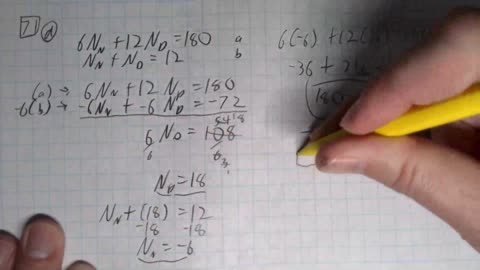 7 d
6N_N + 12N_D = 180 a
N_N + N_D = 12 b
(a) → 6N_N + 12N_D = 180
-6(b) → -6N_N + -6N_D = -72
6N_D = 108
6 6
N_D = 18
N_N + (18) = 12
-18 -18
N_N = -6
6(-6) + 12
-36 +
180